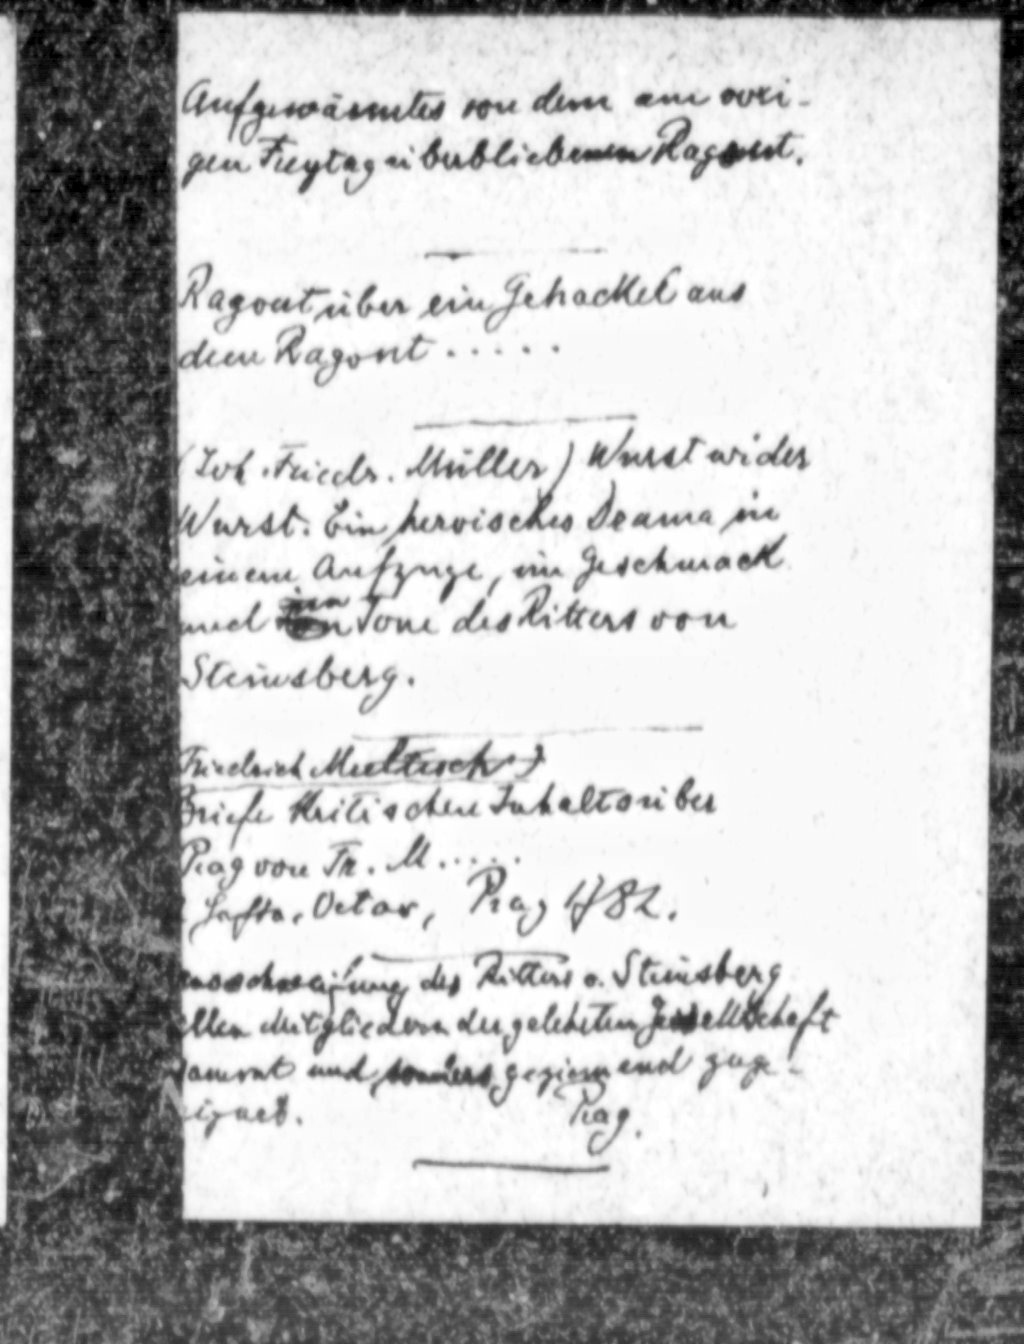 Aufgewärmtes von dem am vori-
gen Freytag überbliebenen Ragout.
Ragout über ein Gehacktel aus
dem Ragout . . . . .
(Joh. Friedr. Müller) Wurst wider
Wurst. Ein heroisches Drama in
einem Aufzuge, im Geschmack
und im Tone des Ritters von
Steinsberg.
Friedrich
Briefe kritischen Inhalts über
Prag von Fr. M . . . . .
Octav, Prag 1782.
des Ritters v. Steinsberg
allen Mitgliedern der gelehrten Gesellschaft
sammt und sonders geziemend zuge-
eignet. Prag.